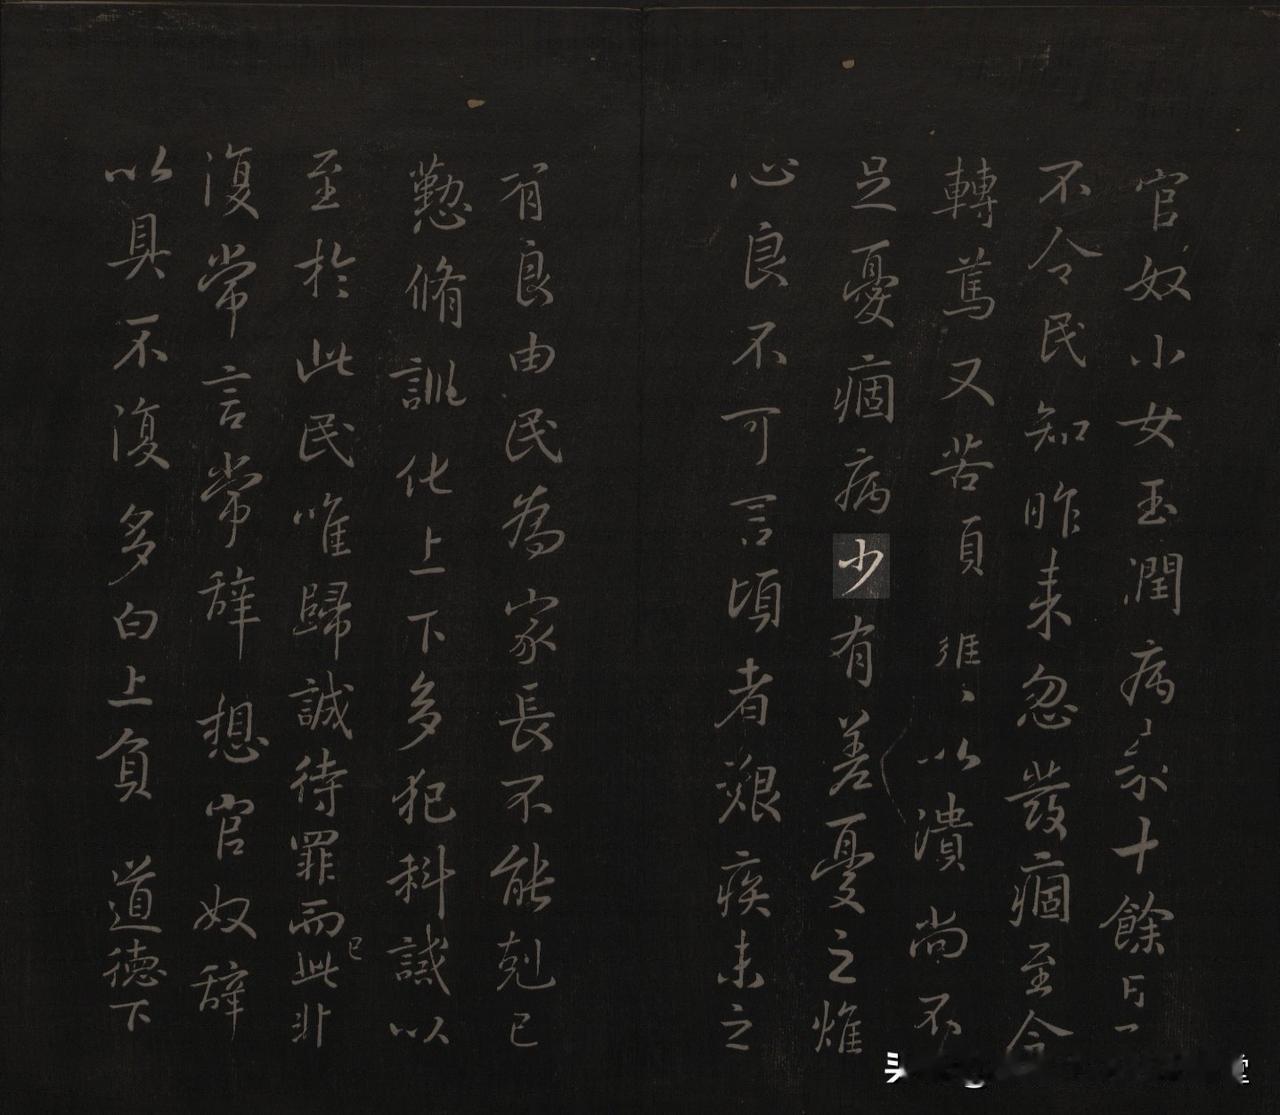 官奴小女玉潤病來十餘日
不令民知昨來忽發痼至今
轉篤又苦頭以潰尚不
足憂痼病少有差憂之燋
心良不可言頃者艱疾未之
有良由民為家長不能剋己
懃脩訓化上下多犯科誡以
至於此民唯歸誠待罪而已此非
復常言常辭想官奴辭
以具不復多白上負道德下